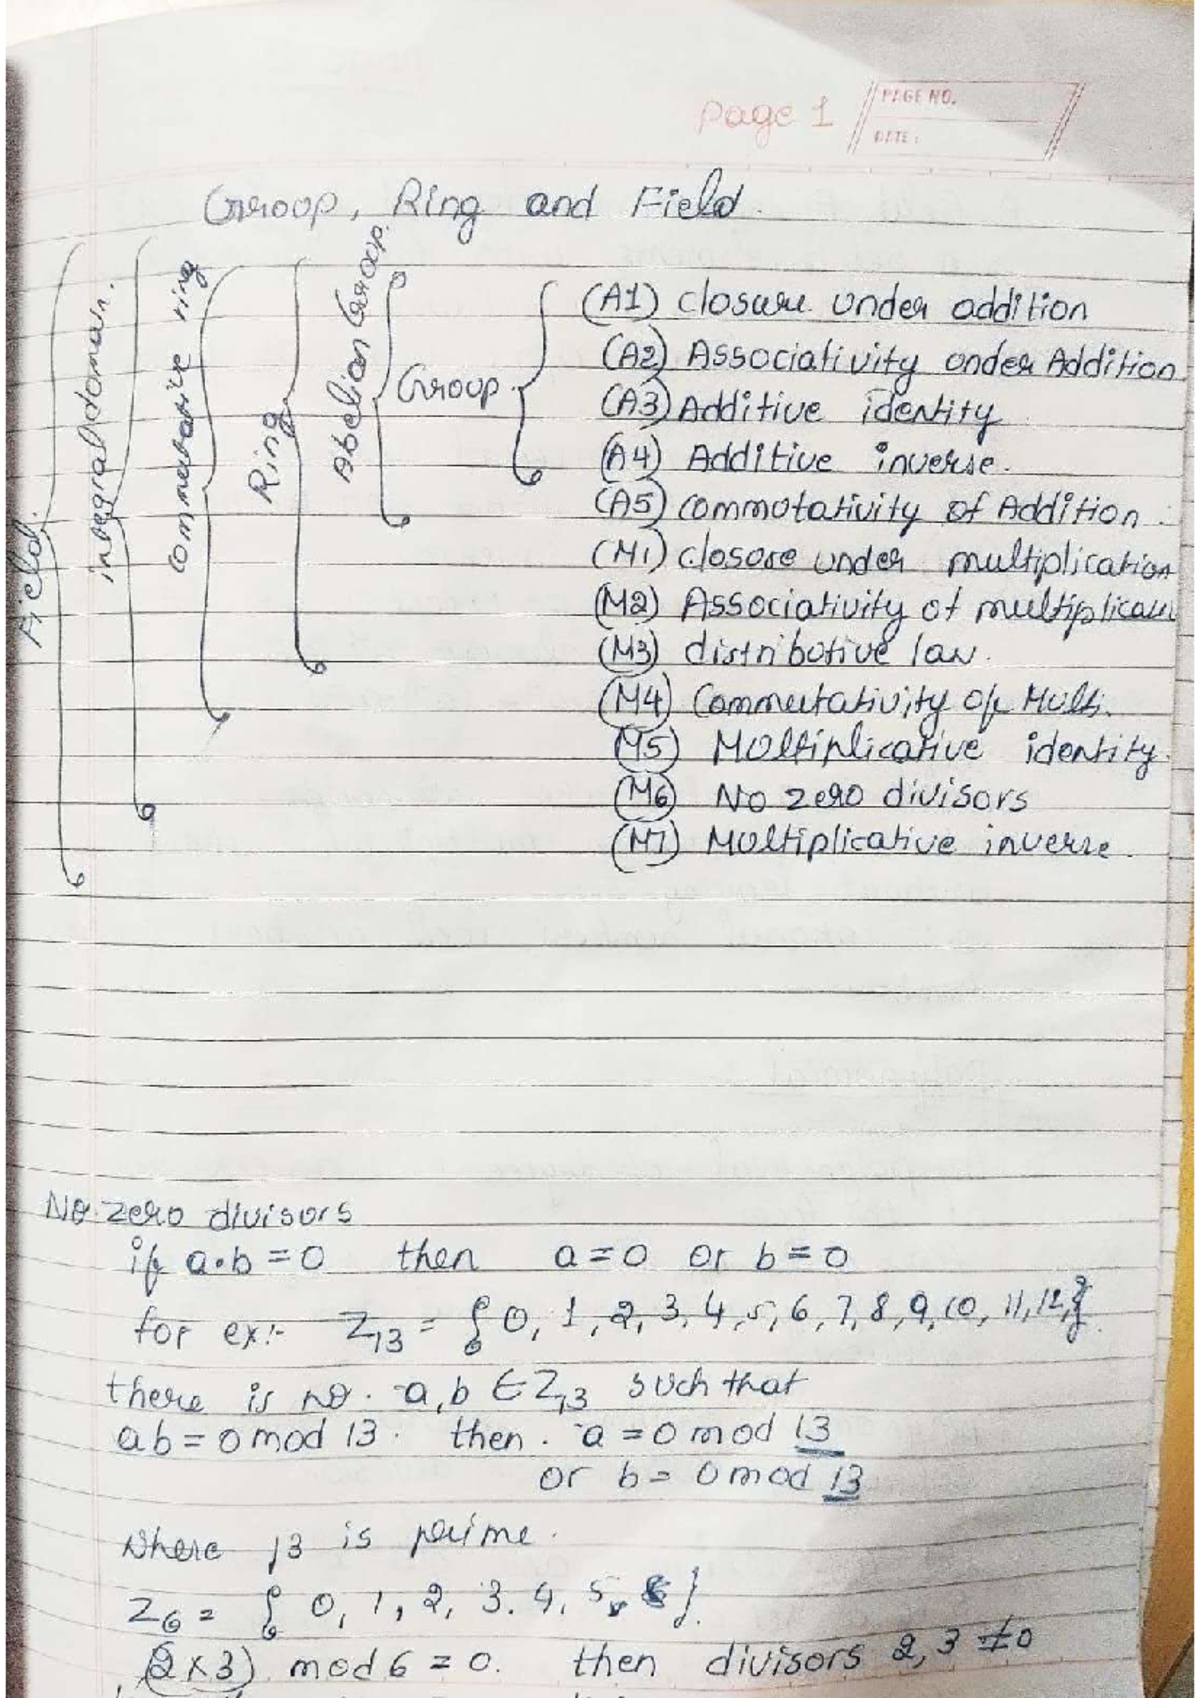 Page 1
PAGE NO.
DATE:
Group, Ring and Field.
Field.
integral domain.
commutative ring
Ring
Abelian Group.
Group
(A1) closure under addition
(A2) Associativity under Addition
(A3) Additive identity
(A4) Additive inverse.
(A5) commutativity of Addition.
(M1) closure under multiplication
(M2) Associativity of multiplicati
(M3) distributive law.
(M4) Commutativity of Multi.
(M5) Multiplicative identity.
(M6) No zero divisors
(M7) Multiplicative inverse.
No zero divisors
if a•b = 0 then a = 0 or b = 0
for ex:- Z13 = { 0, 1, 2, 3, 4, 5, 6, 7, 8, 9, 10, 11, 12, }.
there is no. a, b ∈ Z13 such that
ab = 0 mod 13. then. a = 0 mod 13
or b = 0 mod 13
where 13 is prime.
Z6 = { 0, 1, 2, 3. 4. 5 }.
(2x3) mod 6 = 0. then divisors 2, 3 ≠ 0